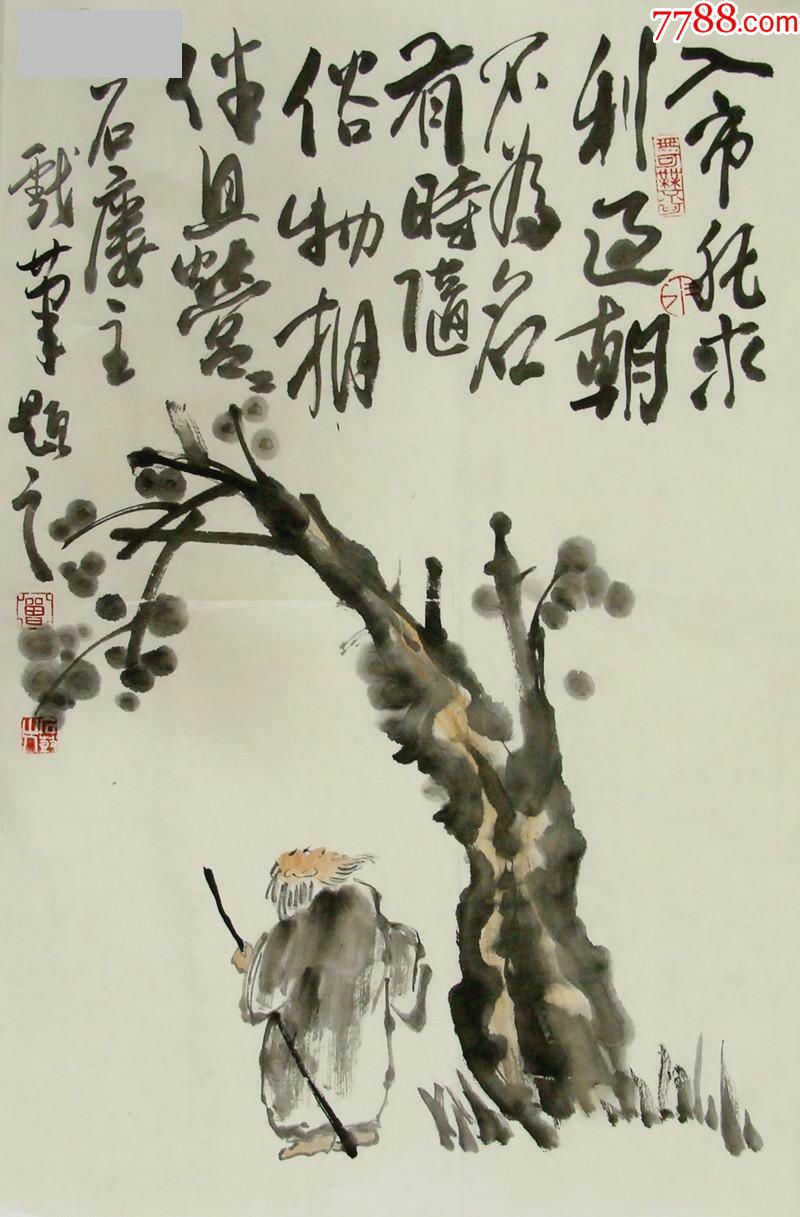 7788.com
入市非求
利過朝
不為名
有時隨
俗物相
伴且營々
石廔主
戲筆題之
曾